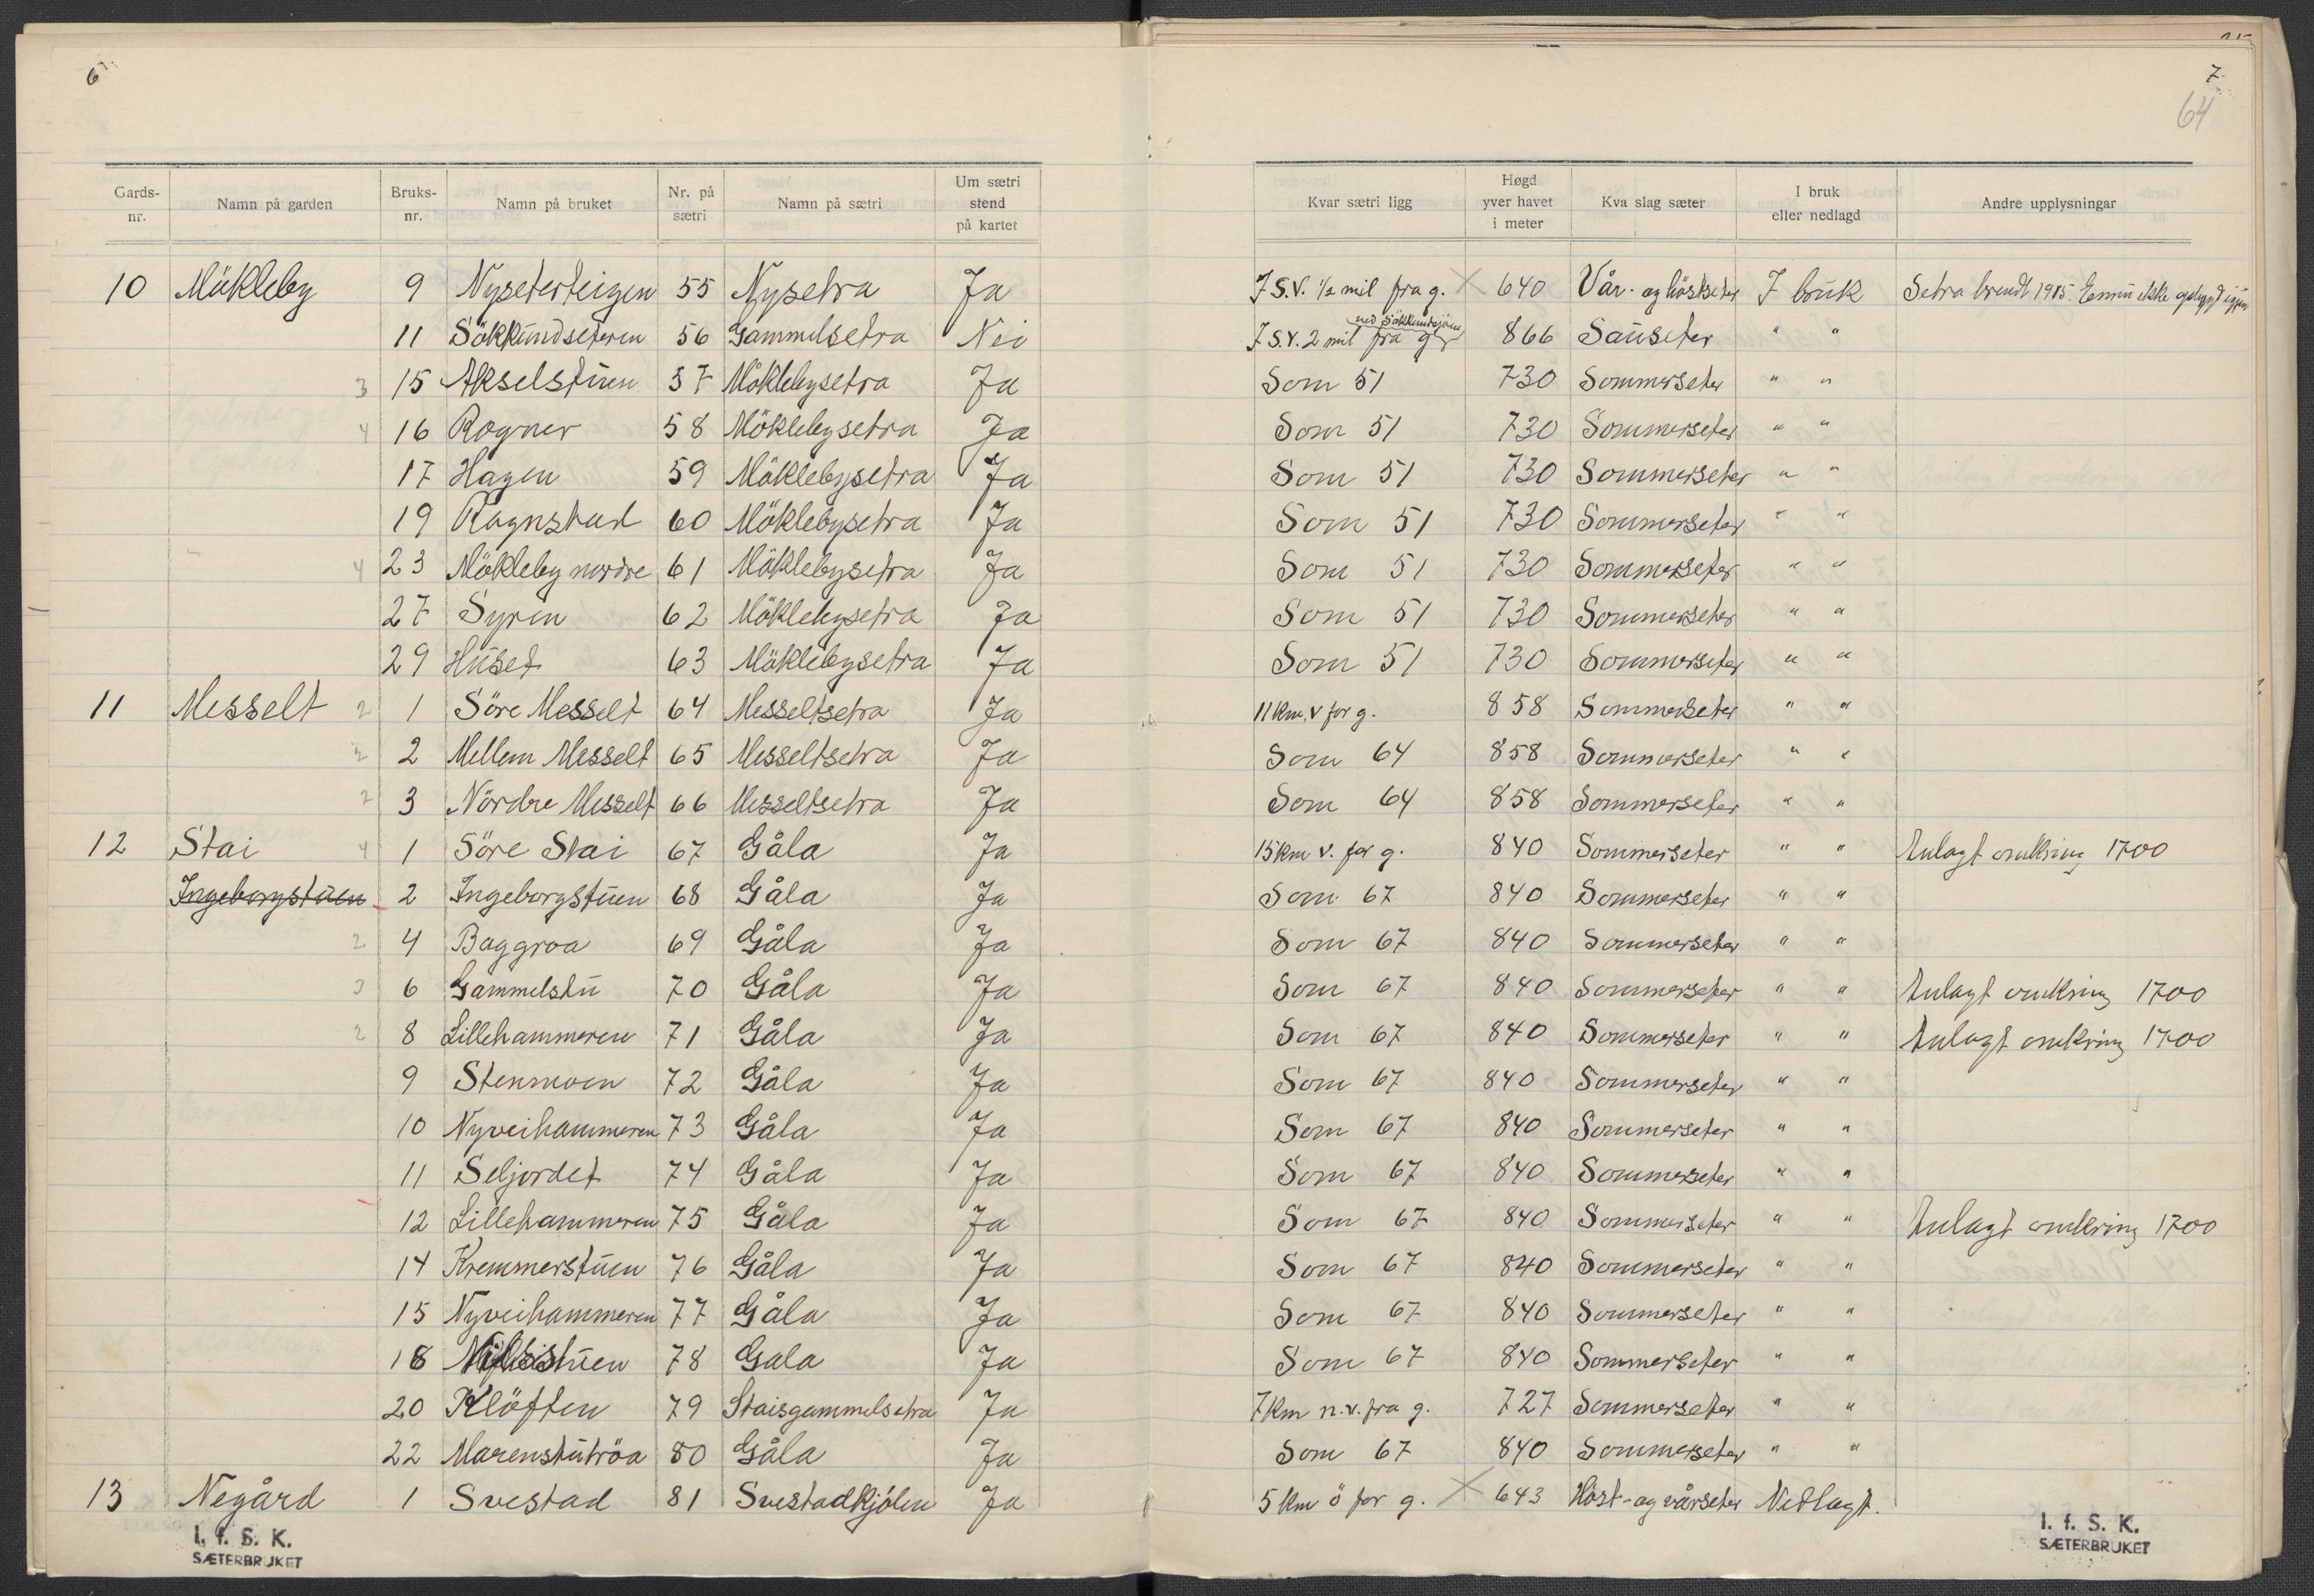 6
7
64
Gards-nr. Namn på garden Bruks-nr. Namn på bruket Nr. på sætri Namn på sætri Um sætri stend på kartet Kvar sætri ligg Høgd yver havet i meter Kva slag sæter I bruk eller nedlagd Andre upplysningar
10 Mökleby 9 Nyseterteigen 55 Nysetra Ja I S.V. 1/2 mil fra g. X 640 Vår- og höstseter I bruk Setra brendt 1915. Ennu ikke opbygd igjen
11 Sökkundseteren 56 Gammelsetra Nei I S.V. 2 mil fra g. ved Sökkundsjöen 866 Sauseter " "
3 15 Akselstuen 57 Möklebysetra Ja Som 51 730 Sommerseter " "
4 16 Rogner 58 Möklebysetra Ja Som 51 730 Sommerseter " "
17 Hagen 59 Möklebysetra Ja Som 51 730 Sommerseter " "
19 Ragnstad 60 Möklebysetra Ja Som 51 730 Sommerseter " "
4 23 Mökleby nordre 61 Möklebysetra Ja Som 51 730 Sommerseter " "
27 Syrin 62 Möklebysetra Ja Som 51 730 Sommerseter " "
29 Huset 63 Möklebysetra Ja Som 51 730 Sommerseter " "
11 Messelt 2 1 Söre Messelt 64 Messeltsetra Ja 11 km. v for g. 858 Sommerseter " "
2 2 Mellem Messelt 65 Messeltsetra Ja Som 64 858 Sommerseter " "
2 3 Nördre Messelt 66 Messeltsetra Ja Som 64 858 Sommerseter " "
12 Stai 4 1 Söre Stai 67 Gåla Ja 15 km v. for g. 840 Sommerseter " " Anlagt omkring 1700
Ingeborgstuen 2 Ingeborgstuen 68 Gåla Ja Som 67 840 Sommerseter " "
2 4 Baggroa 69 Gåla Ja Som 67 840 Sommerseter " "
3 6 Gammelstu 70 Gåla Ja Som 67 840 Sommerseter " " Anlagt omkring 1700
2 8 Lillehammeren 71 Gåla Ja Som 67 840 Sommerseter " " Anlagt omkring 1700
9 Stenmoen 72 Gåla Ja Som 67 840 Sommerseter " "
10 Nyveihammeren 73 Gåla Ja Som 67 840 Sommerseter " "
11 Seljordet 74 Gåla Ja Som 67 840 Sommerseter " "
12 Lillehammeren 75 Gåla Ja Som 67 840 Sommerseter " " Anlagt omkring 1700
14 Kremmerstuen 76 Gåla Ja Som 67 840 Sommerseter " "
15 Nyveihammeren 77 Gåla Ja Som 67 840 Sommerseter " "
18 78 Gala Ja Som 67 840 Sommerseter " "
20 Klöften 79 Staisgammelsetra Ja 7 km n.v. fra g. 727 Sommerseter " "
22 Marenstutröa 80 Gåla Ja Som 67 840 Sommerseter " "
13 Negård 1 Svestad 81 Svestadkjölen Ja 5 km ö for g. X 643 Höst- og vårseter Nedlagt.
I. f. S. K.
SÆTERBRUKET
I. f. S. K.
SÆTERBRUKET